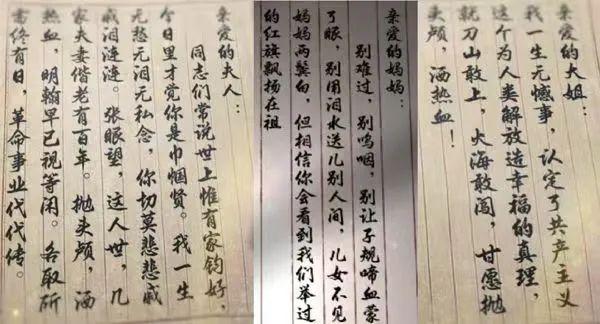 亲爱的夫人：
同志们常说世上惟有家钧好，
今日里才觉你是巾帼贤。我一生
无愁无泪无私念，你切莫悲悲戚
戚泪涟涟。张眼望，这人世，几
家夫妻偕老有百年。抛头颅，洒
热血，明翰早已视等闲。各取所
需终有日，革命事业代代传。
亲爱的妈妈：
别难过，别呜咽，别让子规啼血蒙
了眼，别用泪水送儿别人间，儿女不见
妈妈两鬓白，但相信你会看到我们举过
的红旗飘扬在祖
亲爱的大姐：
我一生无憾事，认定了共产主义
这个为人类解放造幸福的真理，
就刀山敢上，火海敢闯，甘愿抛
头颅，洒热血！